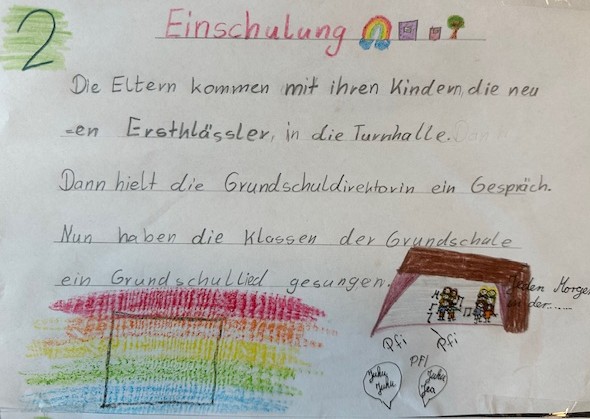 2
Einschulung
Die Eltern kommen mit ihren Kindern, die neu
=en Ersthlässler, in die Turnhalle. Dann
Dann hielt die Grundschuldirektorin ein Gespräch.
Nun haben die Klassen der Grundschule
ein Grundschullied gesungen.
Jeden Morgen
in der......
Pfi Pfi
Pfi
Juhu
Juhu
Juhu